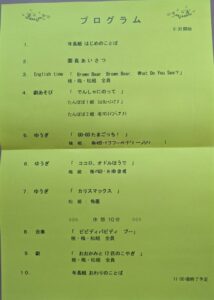 プログラム
9:30開始
1. 年長組 はじめのことば
2. 園長あいさつ
3. English time 「Brown Bear Brown Bear What Do You See?」
全員
4. 劇あそび 「でんしゃにのって」
たんぽぽ1組
たんぽぽ2組
5. ゆうぎ 「GO-GOたまごっち!」
6. ゆうぎ 「ココロ、オドルほうで」
7. ゆうぎ 「カリスマックス」
松組
休憩10分
8. 合奏 「ビビディバビディ ブー」
全員
9. 劇 「おおかみと17匹のこやぎ」
全員
10. 年長組 おわりのことば
11:00頃終了予定